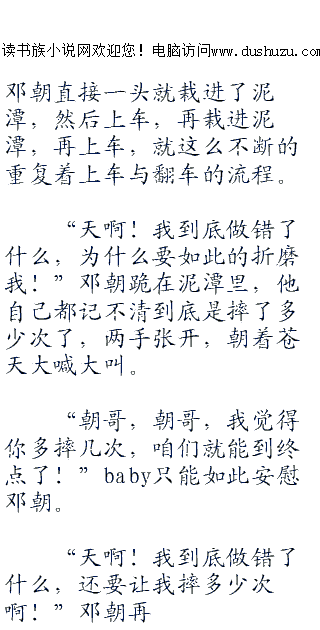 读书族小说网欢迎您！电脑访问www.dushuzu.com
邓朝直接一头就栽进了泥
潭，然后上车，再栽进泥
潭，再上车，就这么不断的
重复着上车与翻车的流程。
“天啊！我到底做错了
什么，为什么要如此的折磨
我！”邓朝跪在泥潭里，他
自己都记不清到底是摔了多
少次了，两手张开，朝着苍
天大喊大叫。
“朝哥，朝哥，我觉得
你多摔几次，咱们就能到终
点了！”baby只能如此安慰
邓朝。
“天啊！我到底做错了
什么，还要让我摔多少次
啊！”邓朝再